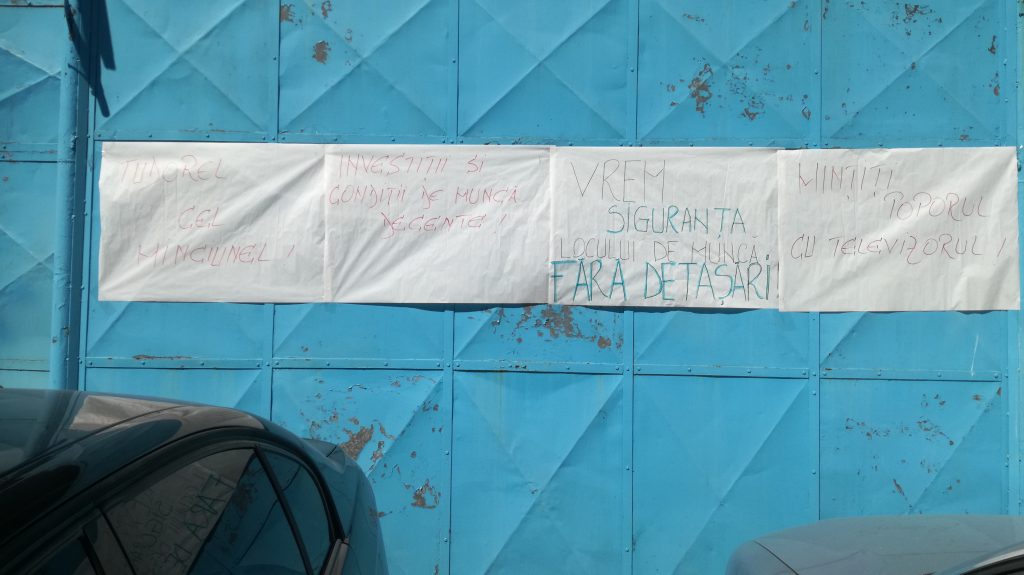 TUDOREL
CEL
MINCIUNEL !
INVESTITII SI
CONDIȚII DE MUNCĂ
DECENTE !
VREM
SIGURANTA
LOCULUI DE MUNCĂ
FĂRĂ DETAȘĂRI !
MINȚIȚI
POPORUL
CU TELEVIZORUL !